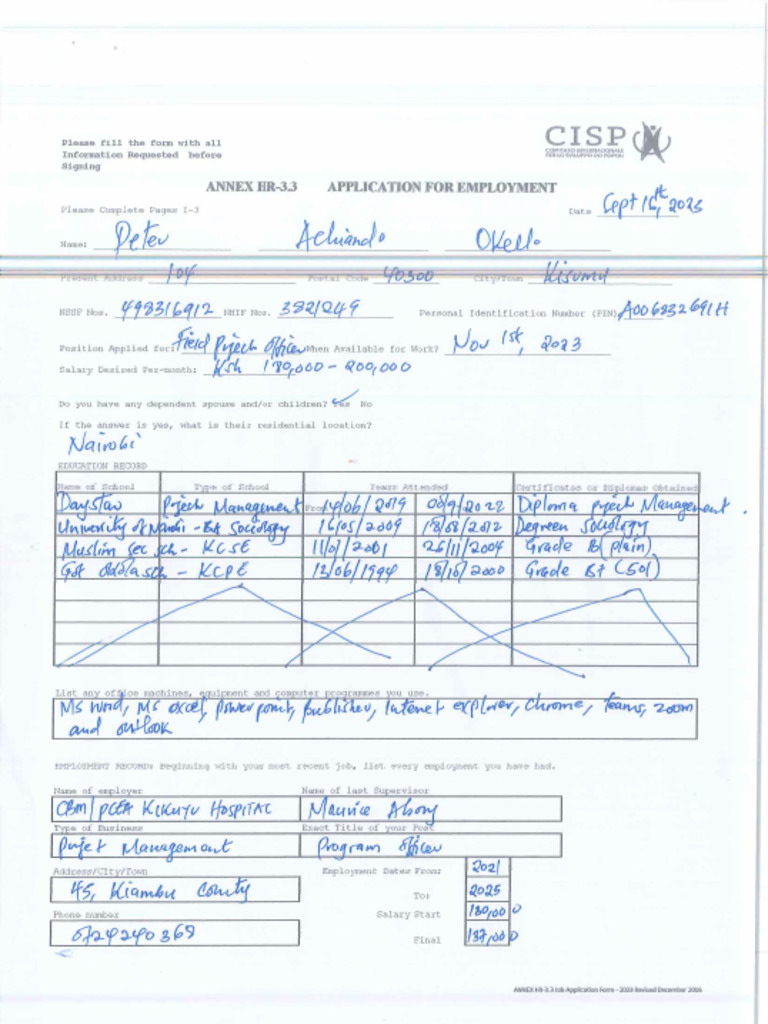 Please fill the form with all
Information Requested before
Signing
CISP
COMITATO INTERNAZIONALE
PER LO SVILUPPO DEI POPOLI
ANNEX HR-3.3 APPLICATION FOR EMPLOYMENT
Please Complete Pages 1-3
Date Sept 16th, 2023
Name: Peter Achiando Okello
Present Address 104 Postal Code 40300 City/Town Kisumu
NSSF Nos. 498316912 NHIF Nos. 3821249 Personal Identification Number (PIN) A006832691H
Position Applied for: Field Project Officer When Available for Work? Nov 1st, 2023
Salary Desired Per-month: Ksh 180,000 - 200,000
Do you have any dependent spouse and/or children? Yes No
If the answer is yes, what is their residential location?
Nairobi
EDUCATION RECORD
Name of School Type of School Years Attended Certificates or Diplomas Obtained
Daystar Project Management From 14/06/2019 08/9/2022 Diploma project Management.
University of Nairobi - BA Sociology 16/05/2009 18/08/2012 Degreen Sociology
Muslim sec sch - KCSE 11/01/2001 26/11/2004 Grade B (plain)
Got sch - KCPE 13/06/1994 18/10/2000 Grade B+ (501)
List any office machines, equipment and computer programmes you use.
Ms word, Ms excel, powerpoint, publisher, Internet explorer, chrome, teams, zoom
and outlook
EMPLOYMENT RECORD: Beginning with your most recent job, list every employment you have had.
Name of employer Name of last Supervisor
CBM/PCEA KIKUYU HOSPITAL Maurice
Type of Business Exact Title of your Post
Projet Management Program officer
Address/City/Town Employment Dates From: 2021
45, Kiambu County To: 2025
Phone number Salary Start 130,000
0724240369 Final 137,000
ANNEX HR-3.3 Job Application Form - 2023 Revised December 2016